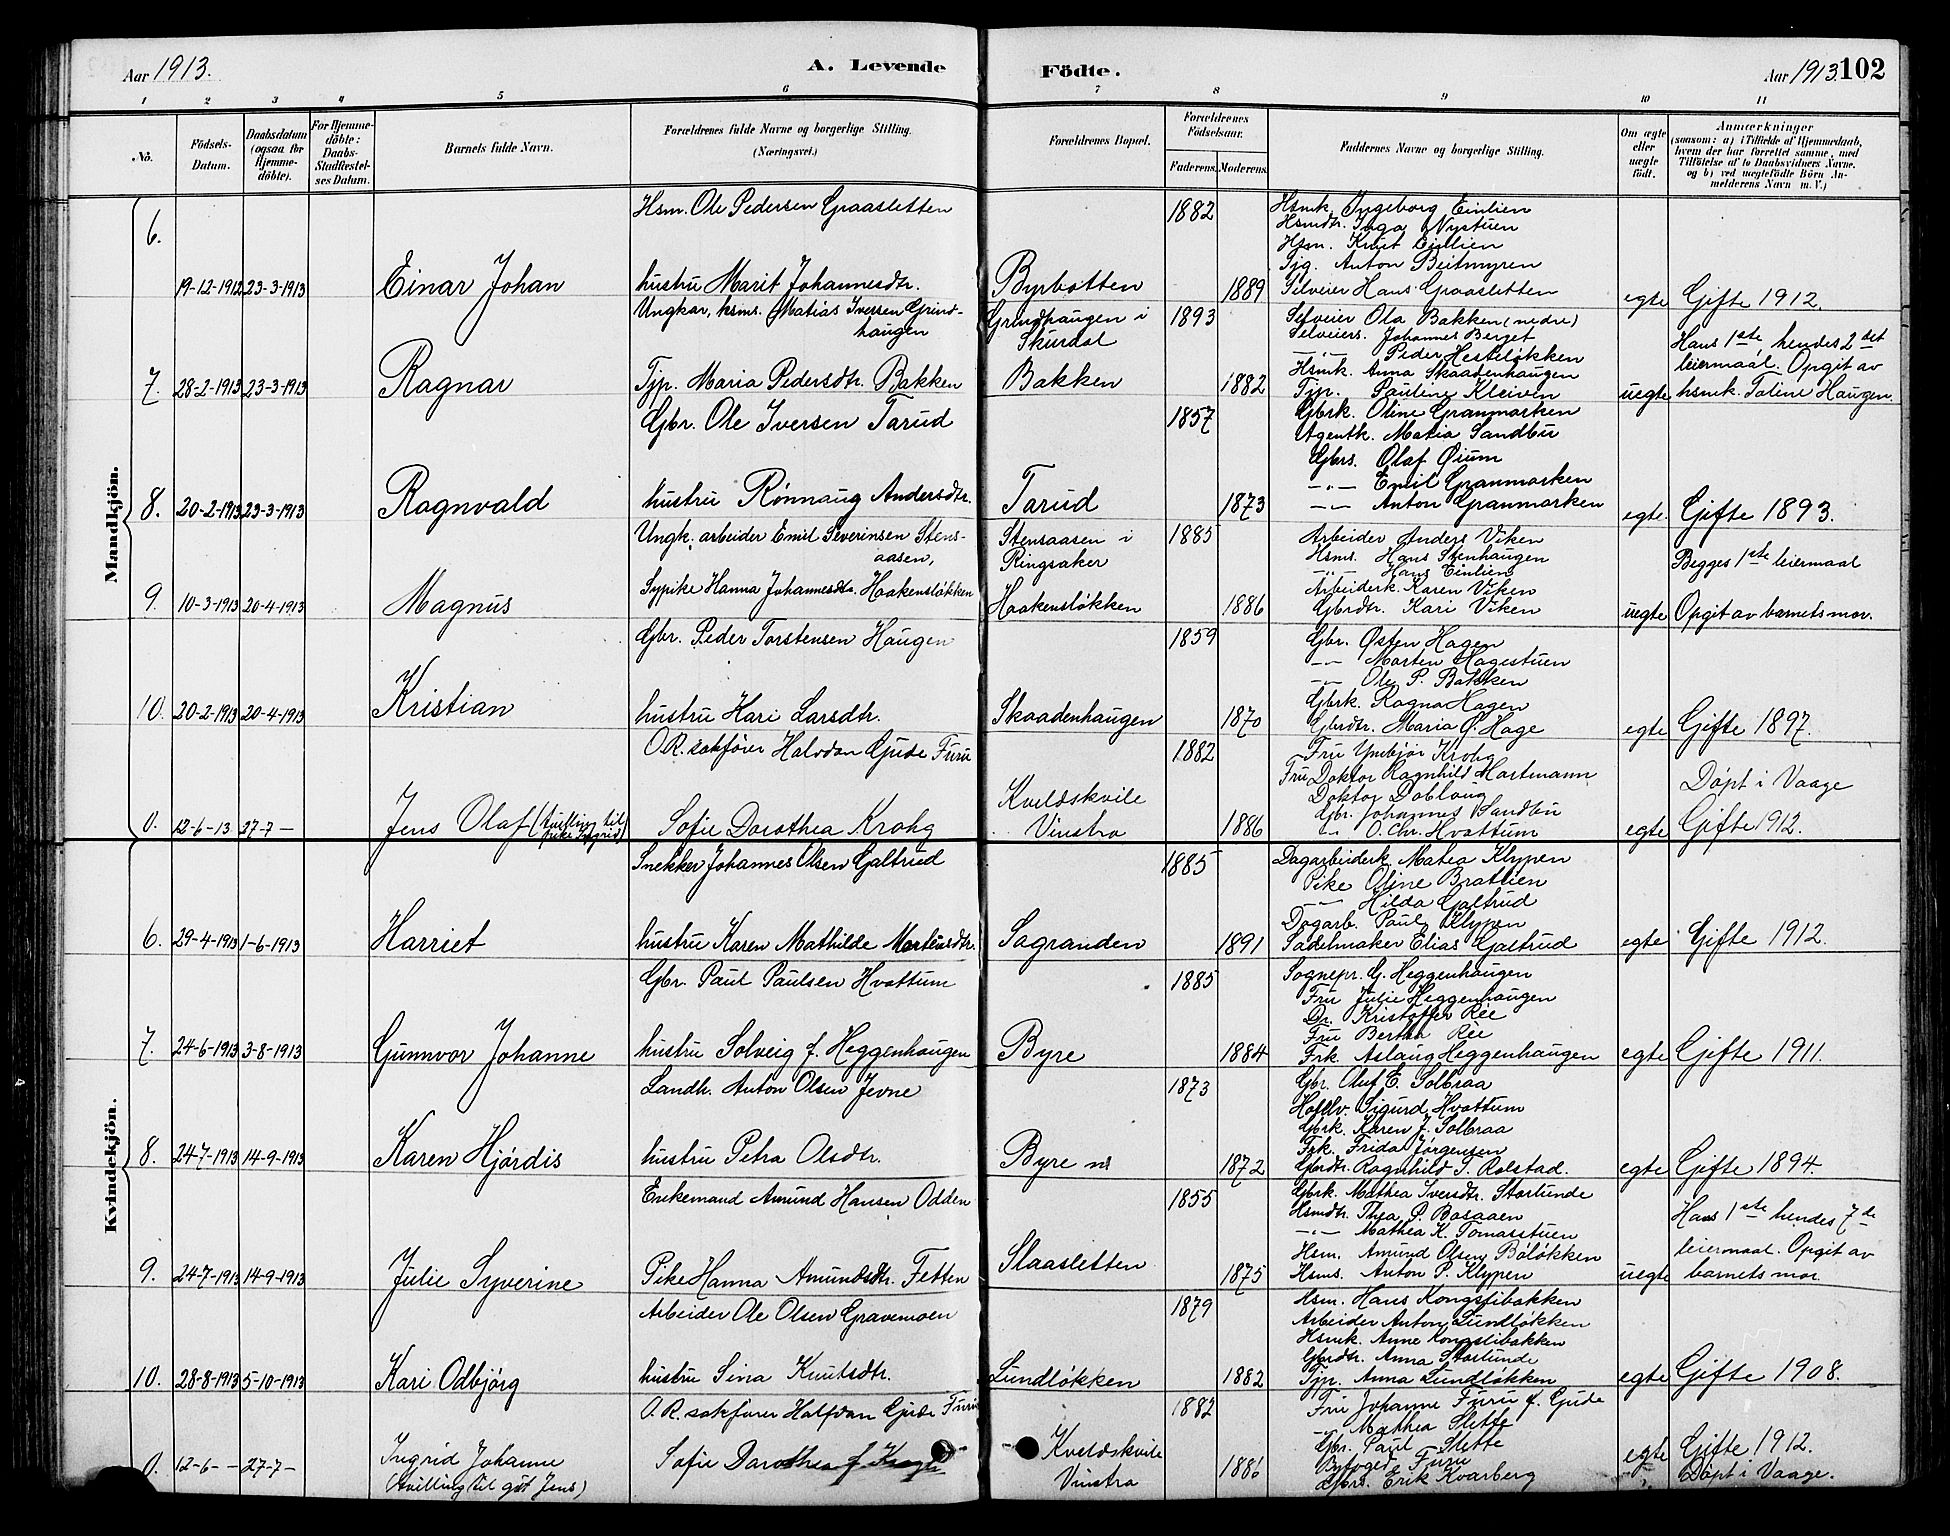 Aar 1913.
A. Levende Födte.
Aar 1913. 102
1 2 3 4 5 6 7 8 9 10 11
No.
Födsels-Datum.
Daabsdatum (ogsaa for Hjemme-döbte).
For Hjemme-döbte: Daabs-Stadfæstel-ses Datum.
Barnets fulde Navn.
Forældrenes fulde Navne og borgerlige Stilling. (Næringsvei.)
Forældrenes Bopæl.
Forældrenes Födselsaar.
Faderens. Moderens.
Faddernes Navne og borgerlige Stilling.
Om ægte eller uægte födt.
Anmærkninger
(saasom: a) i Tilfælde af Hjemmedaab, hvem der har forrettet samme, med Tilföielse af to Daabsvidners Navne. og b) ved uægtefödte Börn An-melderens Navn m. V.)
Mandkjön.
6.
Hsm. Ole Pedersen Graasletten
1882
Hsmk. Ingeborg Einlien
Hsmdtr. Inga Nystuen
Hsm. Knut Einlien
Tjg. Anton Beitmyren
19-12-1912 23-3-1913 Einar Johan hustru Marit Johannesdtr. Byrbotten 1889 Selveier Hans Graasletten egte Gifte 1912.
Ungkar, hsms. Matias Iversen Grind-haugen
Grindhaugen i Skurdal
1893
Selveier Ola Bakken (nedre)
Selveiers. Johannes Berget
-"- Peder Hesteløkken
Hsmk. Anna Skaadenhaugen
Hans 1ste hendes 2det leiermaal. Opgit av
7. 28-2-1913 23-3-1913 Ragnar Tjp. Maria Pedersdtr. Bakken Bakken 1882 Tjp. Pauline Kleiven uegte hsmk. Taline Haugen.
Gbr. Ole Iversen Tarud
1857
Gbrk. Oline Granmarken
Agentk. Matia Sandbu
Gbrs. Olaf Øium
-"- Emil Granmarken
8. 20-2-1913 23-3-1913 Ragnvald hustru Rønnaug Andersdtr. Tarud 1873 -"- Anton Granmarken egte. Gifte 1893.
Ungk. arbeider Emil Severinsen Stens-aasen,
Stensaasen i Ringsaker
1885
Arbeider Anders Viken
Hsms. Hans Stenhaugen
-"- Hans Einlien
Arbeiderk. Karen Viken
Begges 1ste leiermaal
9. 10-3-1913 20-4-1913 Magnus Sypike Hanna Johannesdtr. Haakensløkken Haakensløkken 1886 Gbrdtr. Kari Viken uegte Opgit av barnets mor.
Gbr. Peder Torstensen Haugen
1859
Gbr. Østen Hagen
-"- Morten Hagestuen
-"- Ole P. Bakken
Gbrk. Ragna Hagen
10. 20-2-1913 20-4-1913 Kristian hustru Kari Larsdtr. Skaadenhaugen 1870 Gbrdtr. Maria Ø. Hage egte Gifte 1897.
O.R. sakfører Halvdan Gjude Furu
1882
Fru Krohg
Fru Doktor Ragnhild Hartmann
Doktor Doblaug
Gbr. Johannes Sandbu
Døpt i Vaage
0. 12-6-13 27-7- Jens Olaf (tvilling til pike Ingrid) Sofie Dorothea Krohg Kveldskvile Vinstra 1886 -"- O. Chr. Hvattum egte Gifte 1912.
Kvindekjön.
Snekker Johannes Olsen Galtrud
1885
Dagarbeiderk. Matea Klypen
Pike Oline Bratlien
-"- Hilda Galtrud
Dagarb. Paul Klypen
6. 29-4-1913 1-6-1913 Harriet hustru Karen Mathilde Mortensdtr. Sagranden 1891 Sadelmaker Elias Galtrud egte Gifte 1912.
Gbr. Paul Paulsen Hvattum
1885
Sognepr. G. Heggenhaugen
Fru Julie Heggenhaugen
Dr. Kristoffer Rée
Fru Bertha Rée
7. 24-6-1913 3-8-1913 Gunnvor Johanne hustru Solveig f. Heggenhaugen Byre 1884 Frk. Aslaug Heggenhaugen egte Gifte 1911.
Landh. Anton Olsen Jevne
1873
Gbr. Oluf E. Solbraa
Sigurd Hvattum
Gbrk. Karen J. Solbraa
Frk. Frida Jørgensen
8. 24-7-1913 14-9-1913 Karen Hjørdis hustru Petra Olsdtr. Byre 1872 Gbrdtr. Ragnhild S. Rolstad. egte Gifte 1894.
Enkemand Amund Hansen Odden
1855
Gbrk. Mathea Iversdtr. Storlunde
Hsmdtr. Thea P. Basaaen
-"- Mathea K. Tomasstuen
Hsm. Amund Olsen Bøløkken
Hans 1ste hendes 7de leiermaal. Opgit av
9. 24-7-1913 14-9-1913 Julie Syverine Pike Hanna Amundsdtr. Fetten Slaasletten 1875 Hsms. Anton P. Klypen uegte barnets mor.
Arbeider Ole Olsen Gravemoen
1879
Hsm. Hans Kongslibakken
Arbeider Anton Lundløkken
Hsmk. Anne Kongslibakken
Gbrdtr. Anna Storlunde
10. 28-8-1913 5-10-1913 Kari Odbjørg hustru Sina Knutsdtr. Lundløkken 1882 Tjp. Anna Lundløkken egte Gifte 1908.
O.R. sakfører Halfdan Gjude Furu
1882
Fru Johanne Furu f. Gjude
-"- Mathea Slette
Gbr. Paul Slette
Byfoged Furu
0. 12-6-- 27-7- Ingrid Johanne (tvilling til gut Jens) Sofie Dorothea f. Krogh Kveldskvile Vinstra 1886 Gbrs. Erik Kvarberg egte Gifte 1912. Døpt i Vaage.